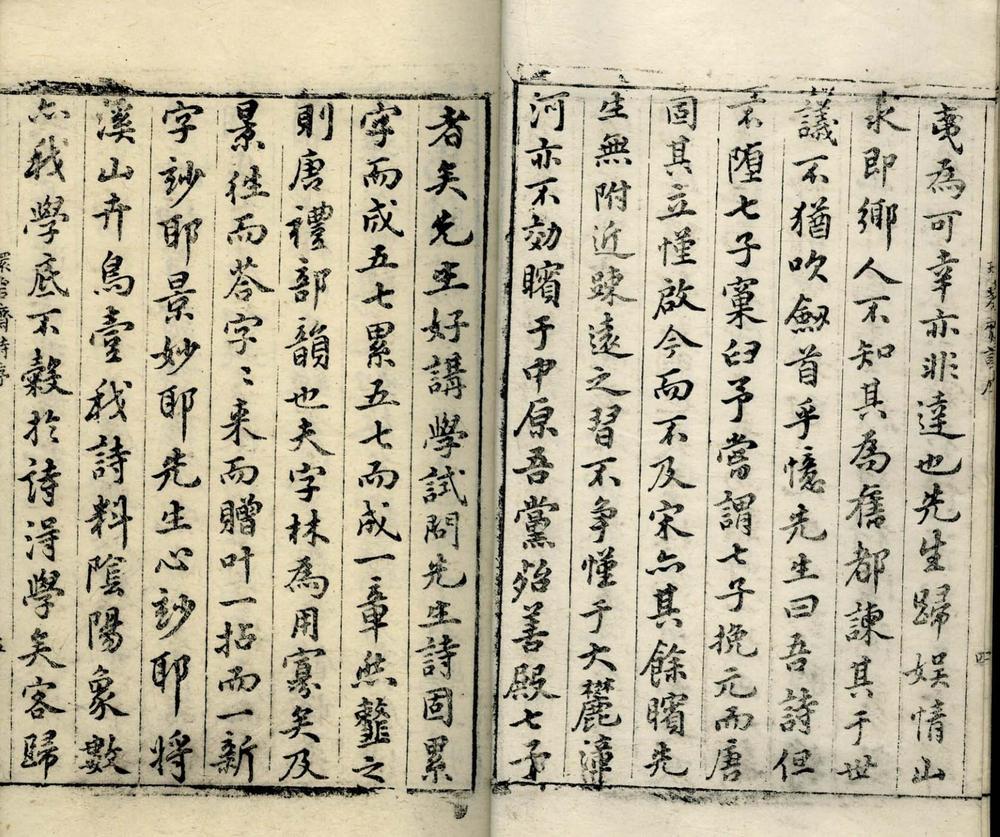 夷為可幸亦非達也先生歸娛情山
水即鄉人不知其為舊都諫其于世
議不猶吹劔首乎憶先生曰吾詩但
不墮七子窠臼予嘗謂七子挽元而唐
固其立懂啟今而不及宋亦其餘矉先
生無附近踈遠之習不爭懂于大麓漳
河亦不効矉于中原吾黨殆善殿七子
者矣先生好講學試問先生詩固累
字而成五七累五七而成一章然虀之
則唐禮部韻也夫字林為用寡矣及
景徃而荅字〻来而贈叶一拈而一新
字玅耶景妙耶先生心玅耶將
溪山卉鳥壹我詩料陰陽象數
亦我學底不穀於詩淂學矣客歸
四